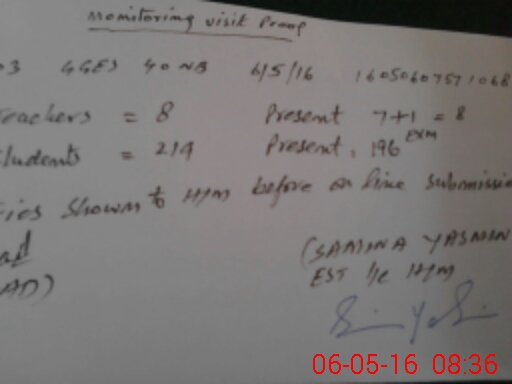 Monitoring visit Proof
03 GGES 40 NB 6/5/16 16050607571068
Teachers = 8 Present 7+1 = 8
Students = 214 Present. 196 EXM
ties Shown to H/M before on line submission
(SAMINA YASMIN
AD)
EST I/C H/M
06-05-16 08:36